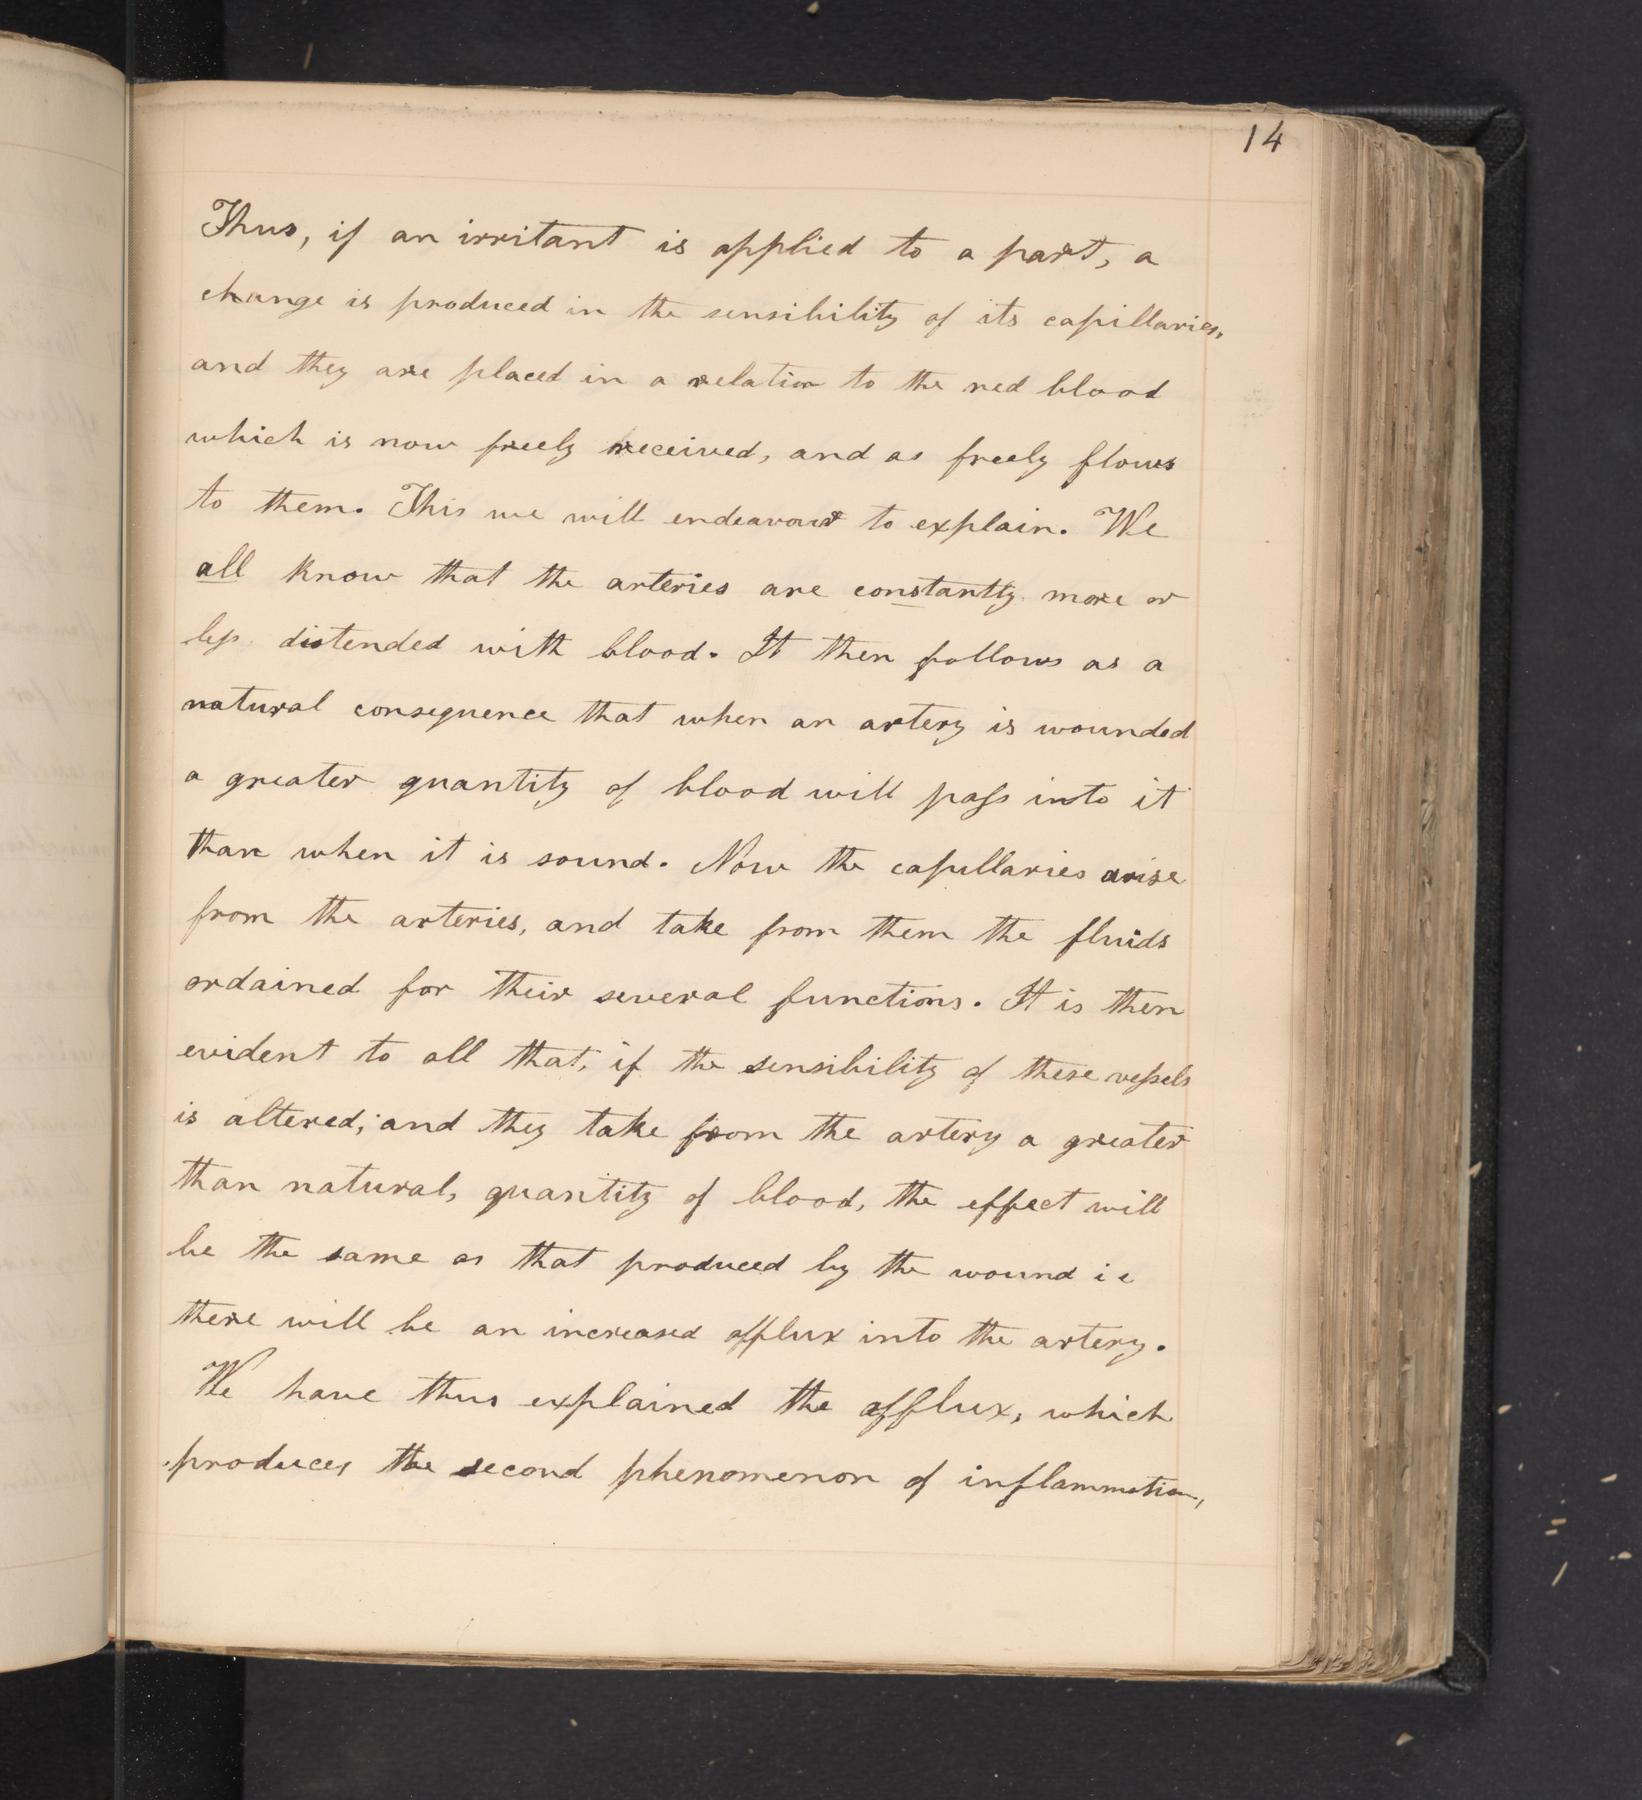 14
Thus, if an irritant is applied to a part, a
change is produced in the sensibility of its capillaries,
and they are placed in a relation to the red blood
which is now freely received, and as freely flows
to them. This we will endeavour to explain. We
all know that the arteries are constantly more or
less distended with blood. It then follows as a
natural consequence that when an artery is wounded
a greater quantity of blood will pass into it
than when it is sound. Now the capillaries arise
from the arteries, and take from them the fluids
ordained for their several functions. It is then
evident to all that, if the sensibility of these vessels
is altered, and they take from the artery a greater
than natural, quantity of blood, the effect will
be the same as that produced by the wound i e
there will be an increased afflux into the artery.
We have thus explained the afflux, which
produces the second phenomenon of inflammation,